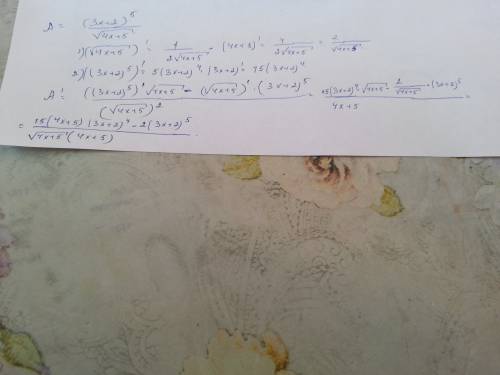 A = (3x+2)^5 / √(4x+5)
1) (√(4x+5))' = 1 / (2√(4x+5)) · (4x+5)' = 4 / (2√(4x+5)) = 2 / √(4x+5)
2) ((3x+2)^5)' = 5(3x+2)^4 · (3x+2)' = 15(3x+2)^4
A' = (((3x+2)^5)' √(4x+5) - (√(4x+5))' · (3x+2)^5) / (√(4x+5))^2 = (15(3x+2)^4 · √(4x+5) - 2/√(4x+5) · (3x+2)^5) / (4x+5) =
= (15(4x+5)(3x+2)^4 - 2(3x+2)^5) / (√(4x+5) (4x+5)).